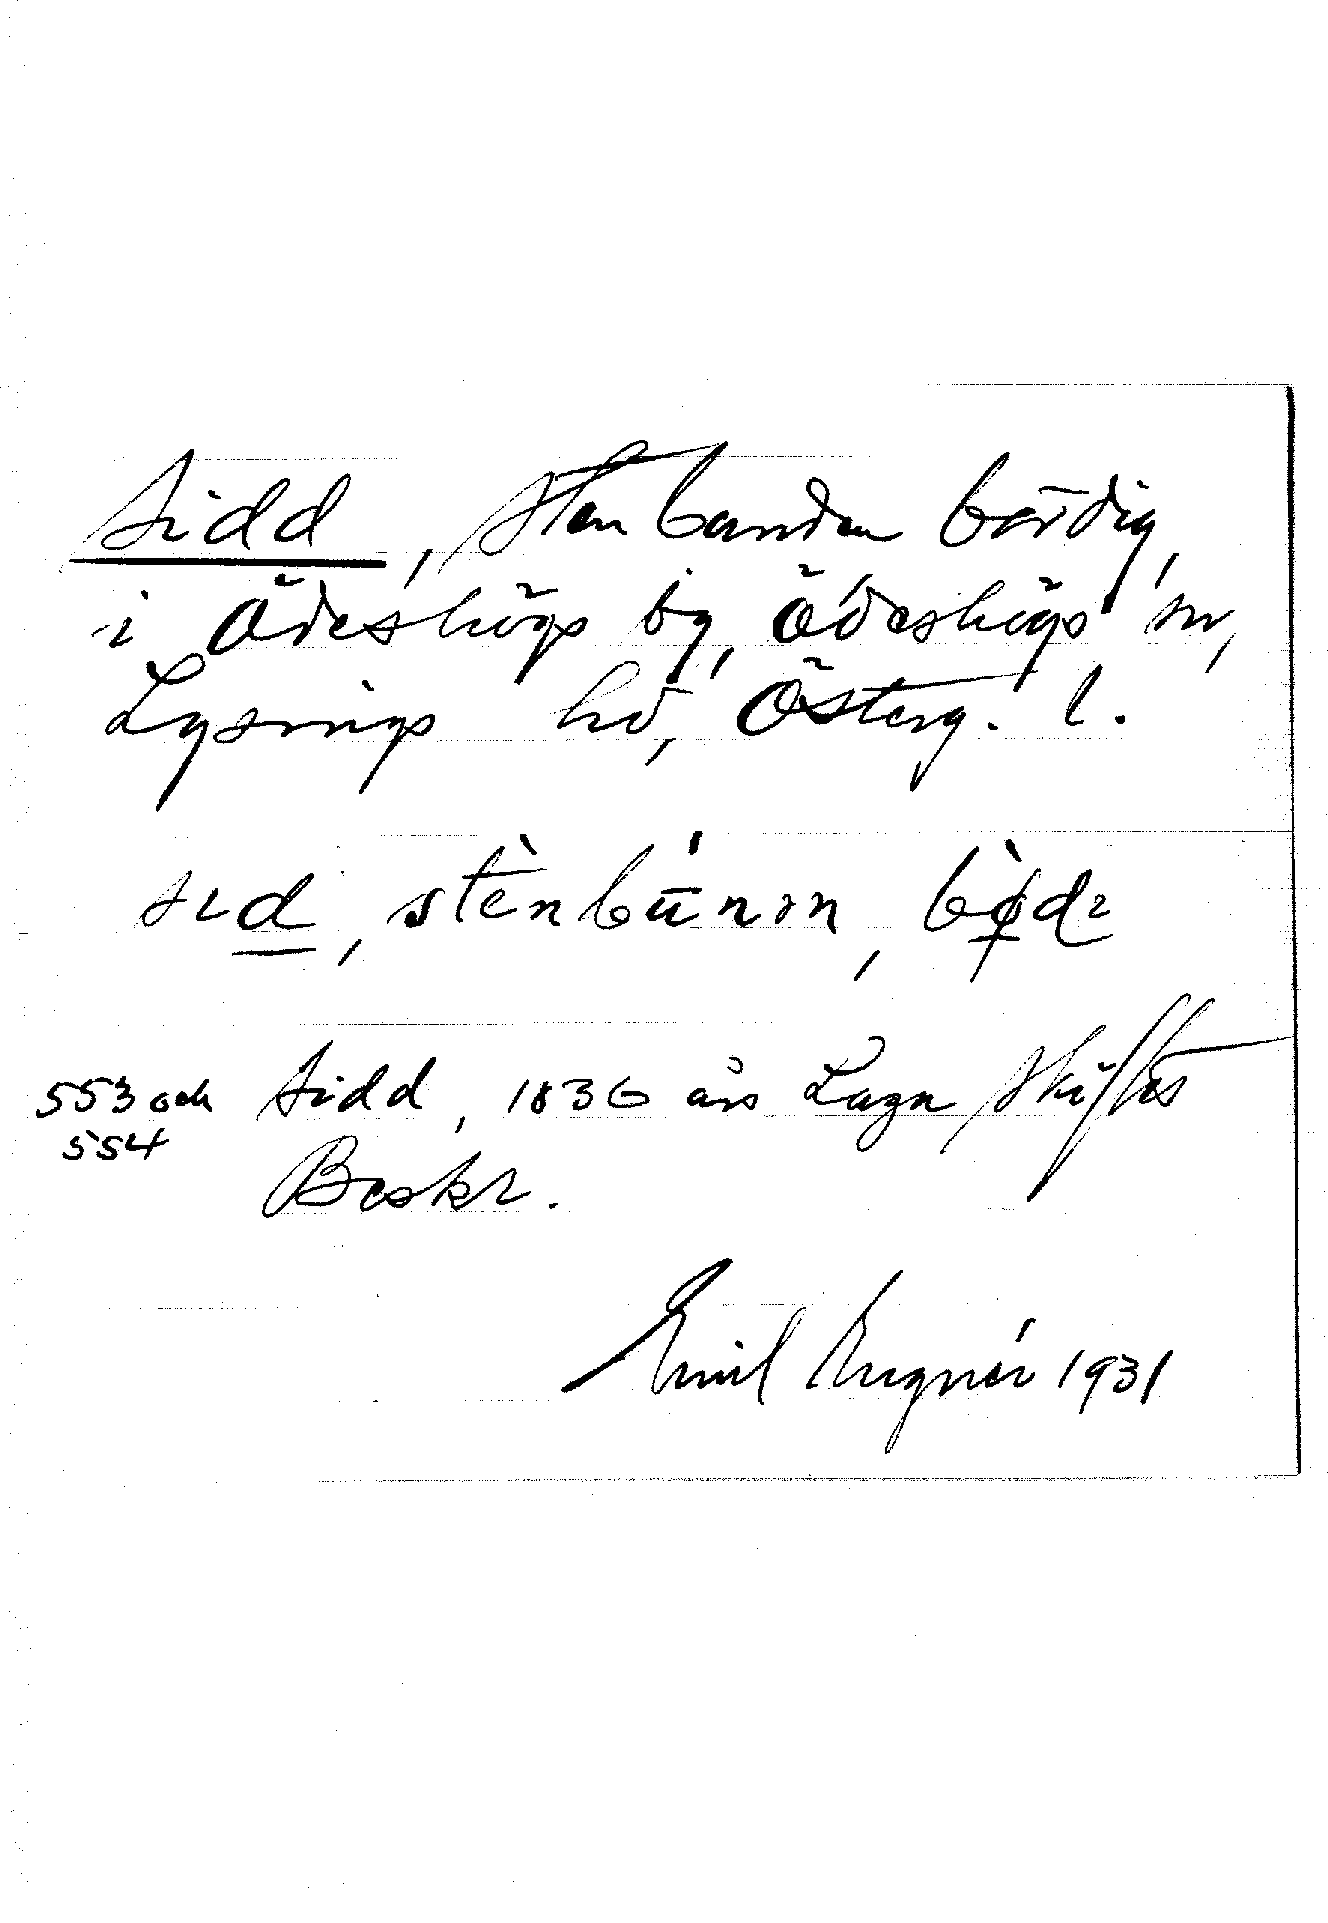 Sidd, stenbunden bördig,
i Ödeshögs by, Ödeshögs sn,
Lysings hd, Österg. l.
sıd, stènbúnən, bø̀dı
553 och Sidd, 1836 års Laga skiftes
554
Beskr.
Emil 1931